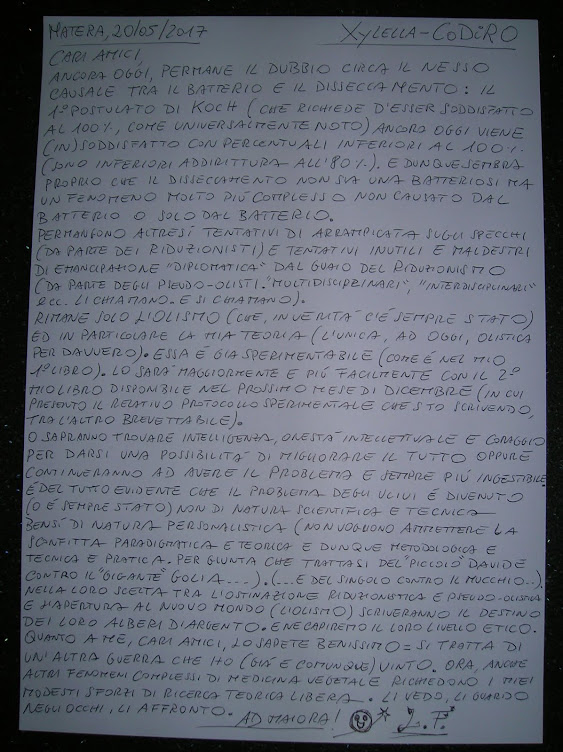 MATERA, 20/05/2017 XYLELLA-CODIRO
CARI AMICI,
ANCORA OGGI, PERMANE IL DUBBIO CIRCA IL NESSO
CAUSALE TRA IL BATTERIO E IL DISSECCAMENTO: IL
1° POSTULATO DI KOCH (CHE RICHIEDE D'ESSER SODDISFATTO
AL 100%, COME UNIVERSALMENTE NOTO) ANCORA OGGI VIENE
(IN)SODDISFATTO CON PERCENTUALI INFERIORI AL 100%
(SONO INFERIORI ADDIRITTURA ALL'80%). E DUNQUE SEMBRA
PROPRIO CHE IL DISSECCAMENTO NON SIA UNA BATTERIOSI MA
UN FENOMENO MOLTO PIÚ COMPLESSO NON CAUSATO DAL
BATTERIO O SOLO DAL BATTERIO.
PERMANGONO ALTRESÍ TENTATIVI DI ARRAMPICATA SUGLI SPECCHI
(DA PARTE DEI RIDUZIONISTI) E TENTATIVI INUTILI E MALDESTRI
DI EMANCIPAZIONE "DIPLOMATICA" DAL GUAIO DEL RIDUZIONISMO
(DA PARTE DEGLI PSEUDO-OLISTI. "MULTIDISCIPLINARI", "INTERDISCIPLINARI"
ECC. LI CHIAMANO. E SI CHIAMANO).
RIMANE SOLO L'OLISMO (CHE, IN VERITÁ C'É SEMPRE STATO)
ED IN PARTICOLARE LA MIA TEORIA (L'UNICA, AD OGGI, OLISTICA
PER DAVVERO). ESSA É GIÁ SPERIMENTABILE (COME É NEL MIO
1° LIBRO). LO SARÁ MAGGIORMENTE E PIÚ FACILMENTE CON IL 2°
MIO LIBRO DISPONIBILE NEL PROSSIMO MESE DI DICEMBRE (IN CUI
PRESENTO IL RELATIVO PROTOCOLLO SPERIMENTALE CHE STO SCRIVENDO,
TRA L'ALTRO BREVETTABILE).
O SAPRANNO TROVARE INTELLIGENZA, ONESTÁ INTELLETTUALE E CORAGGIO
PER DARSI UNA POSSIBILITÁ DI MIGLIORARE IL TUTTO OPPURE
CONTINUERANNO AD AVERE IL PROBLEMA E SEMPRE PIÚ INGESTIBILE.
É DEL TUTTO EVIDENTE CHE IL PROBLEMA DEGLI ULIVI É DIVENUTO
(O É SEMPRE STATO) NON DI NATURA SCIENTIFICA E TECNICA
BENSÍ DI NATURA PERSONALISTICA (NON VOGLIONO AMMETTERE LA
SCONFITTA PARADIGMATICA E TEORICA E DUNQUE METODOLOGICA E
TECNICA E PRATICA. PER GIUNTA CHE TRATTASI DEL "PICCOLO" DAVIDE
CONTRO IL "GIGANTE" GOLIA....). (...E DEL SINGOLO CONTRO IL MUCCHIO..).
NELLA LORO SCELTA TRA L'OSTINAZIONE RIDUZIONISTICA E PSEUDO-OLISTICA
E L'APERTURA AL NUOVO MONDO (L'OLISMO) SCRIVERANNO IL DESTINO
DEI LORO ALBERI D'ARGENTO. E NE CAPIREMO IL LORO LIVELLO ETICO.
QUANTO A ME, CARI AMICI, LO SAPETE BENISSIMO = SI TRATTA DI
UN'ALTRA GUERRA CHE HO (GIÁ E COMUNQUE) VINTO. ORA, ANCHE
ALTRI FENOMENI COMPLESSI DI MEDICINA VEGETALE RICHIEDONO I MIEI
MODESTI SFORZI DI RICERCA TEORICA LIBERA. LI VEDO, LI GUARDO
NEGLI OCCHI, LI AFFRONTO. AD MAIORA!